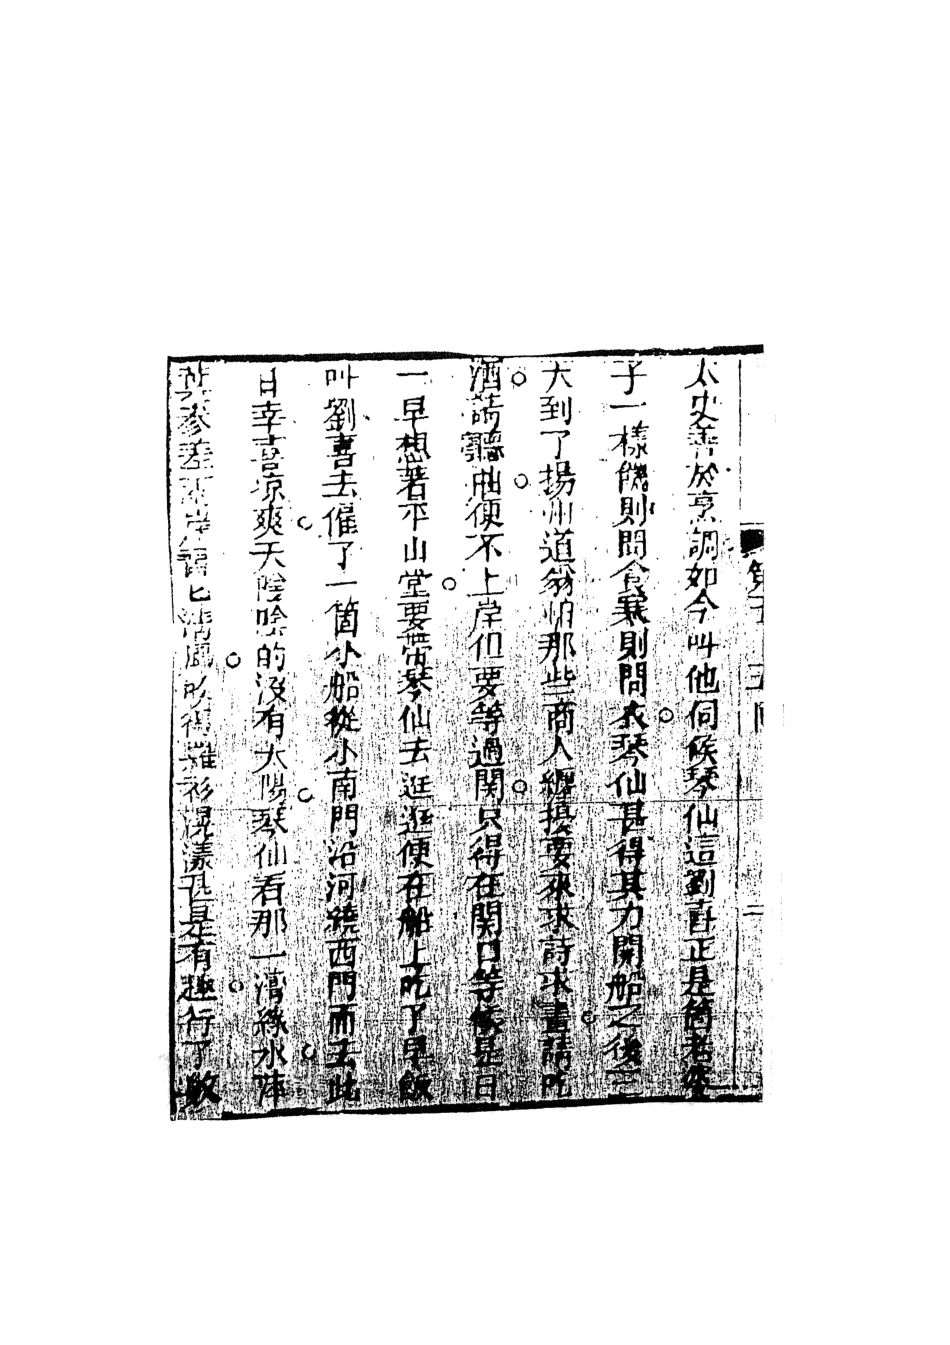 第五十五回
二
太史善於烹調如今叫他伺候琴仙這劉喜正是箇老婆
子一樣饑則問食寒則問衣琴仙甚得其力開船之後三
天到了揚州道翁怕那些商人纏擾要來求詩求畫請吃
酒請聽曲便不上岸但要等過關只得在關口等候是日
一早想著平山堂要帶琴仙去逛逛便在船上吃了早飯
叫劉喜去僱了一箇小船從小南門沿河繞西門而去此
日幸喜涼爽天陰陰的沒有太陽琴仙看那一灣綠水萍
葉參差兩岸習習清風吹得羅衫滉漾甚是有趣行了數